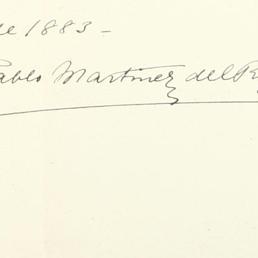 de 1883 -
Pablo Martinez del R